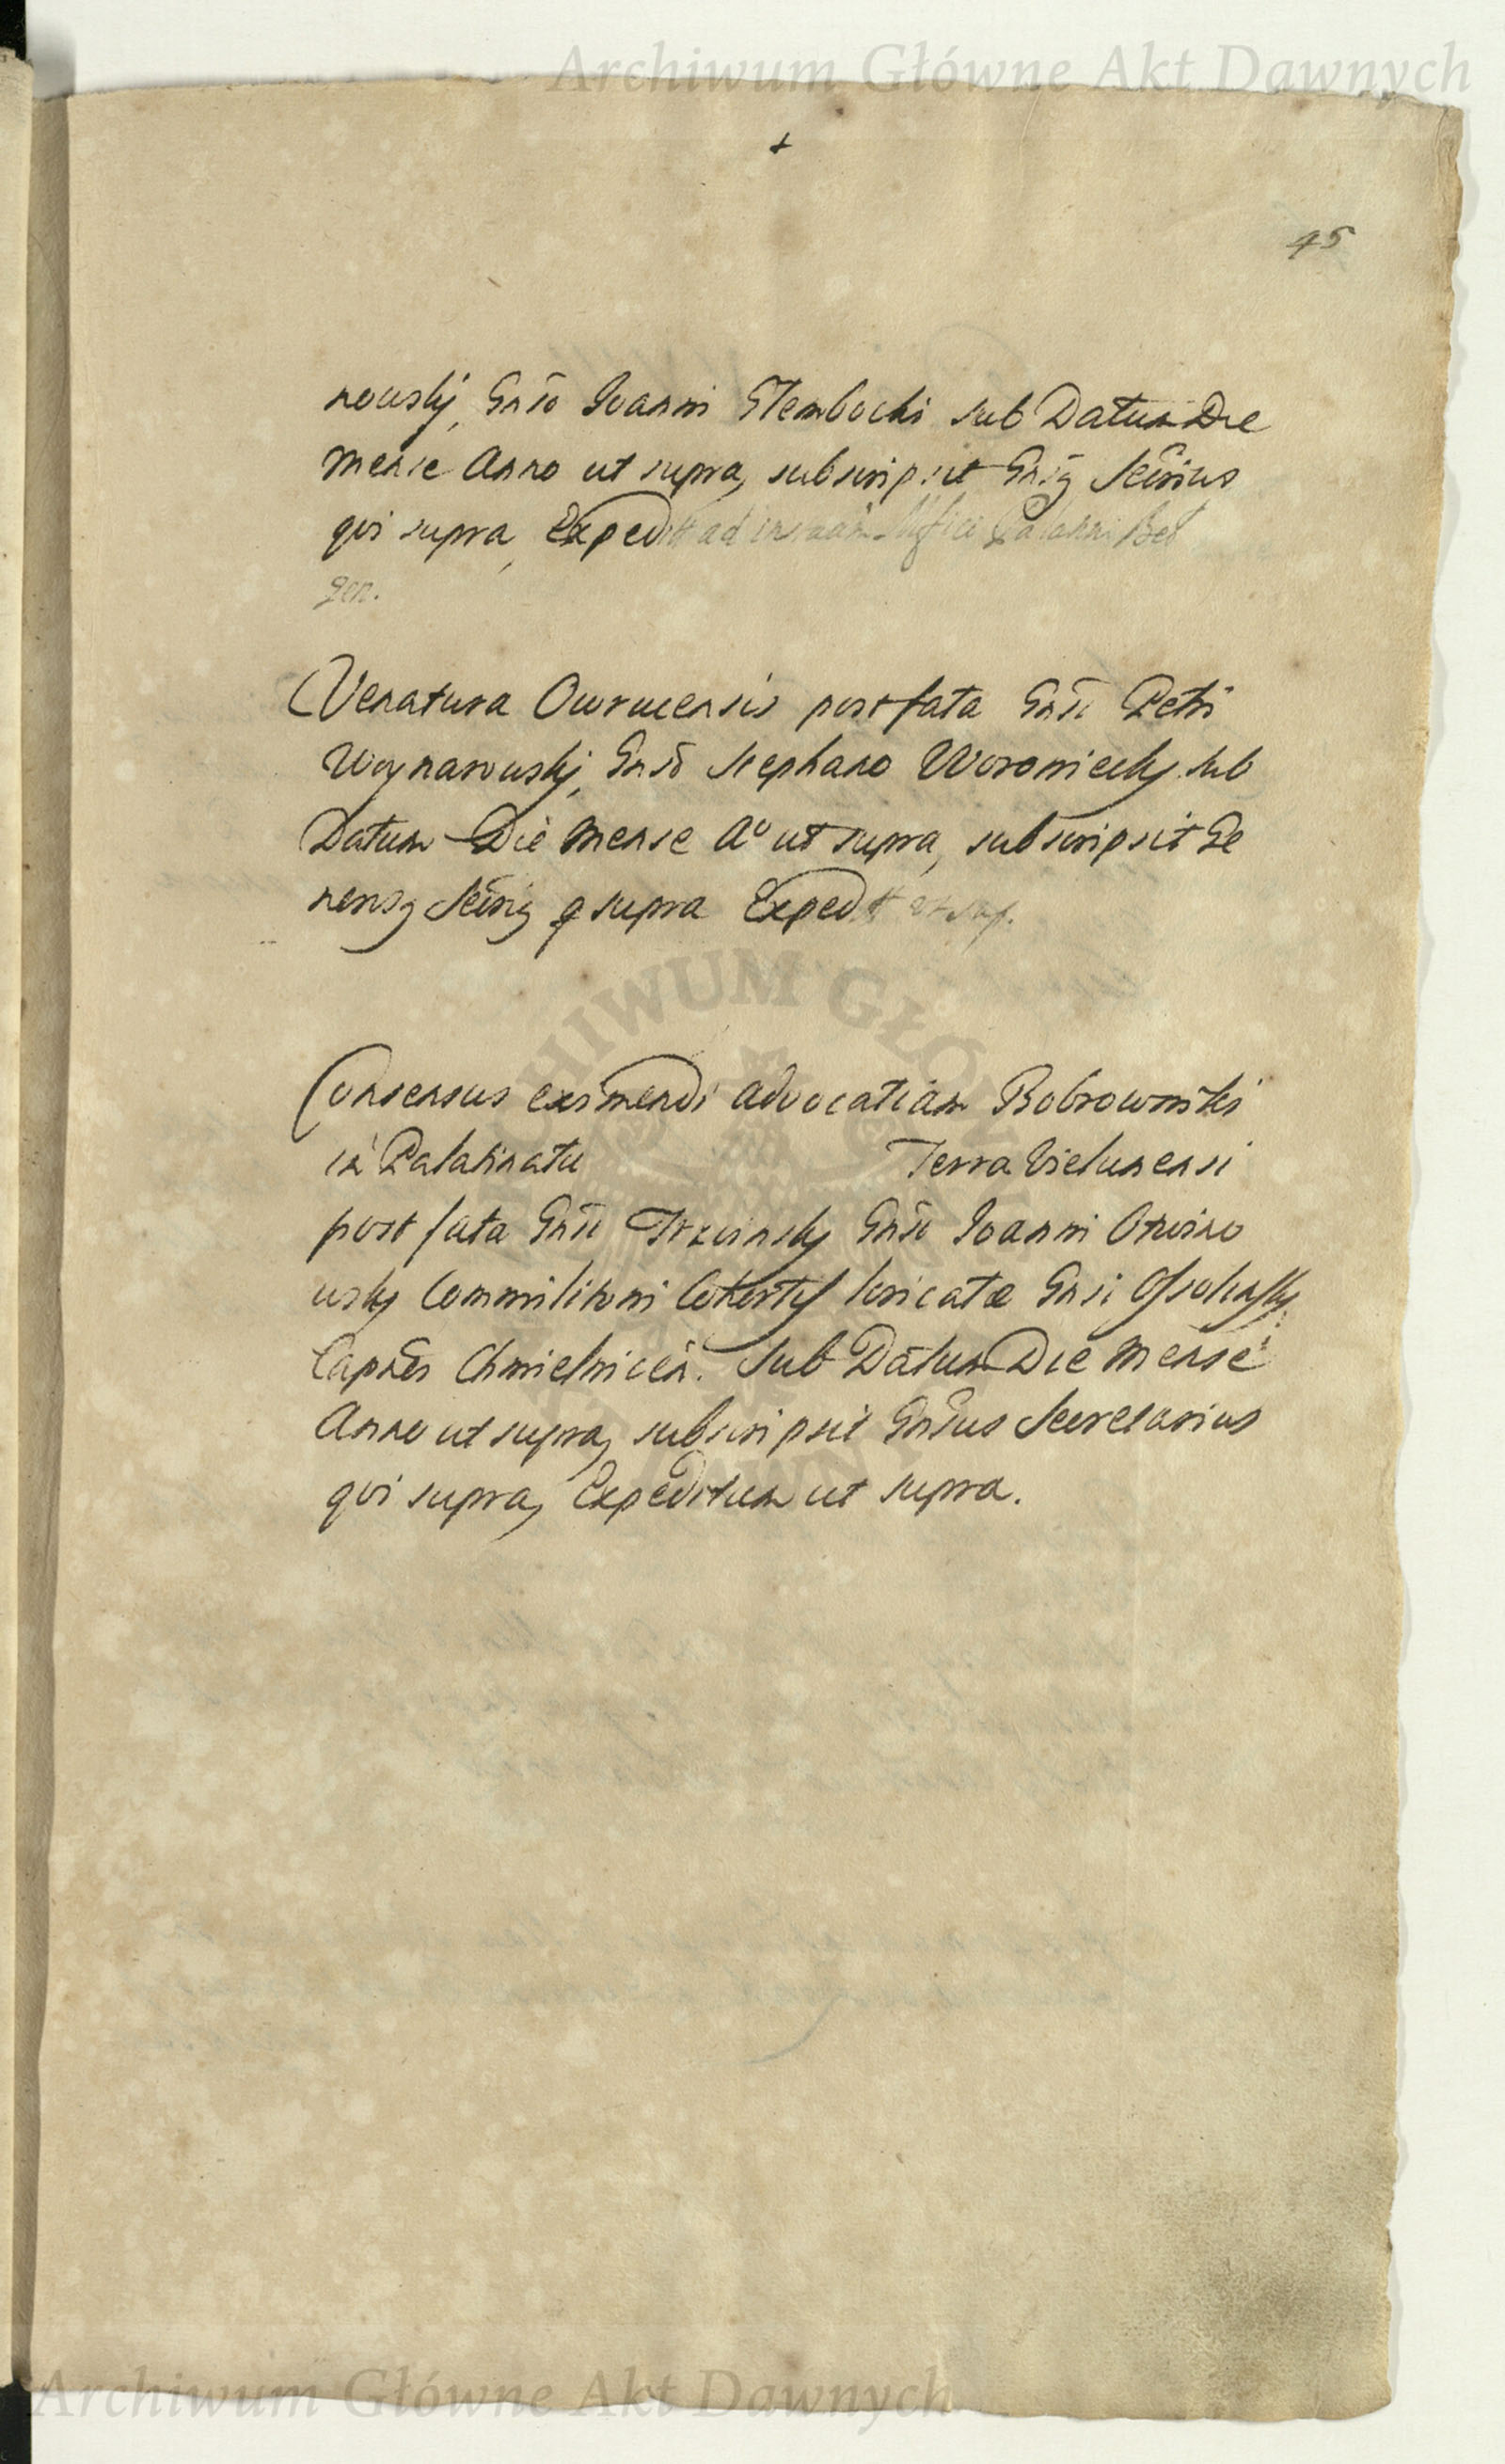 Archiwum Główne Akt Dawnych
+
45
nowskj, Gnso Joanni Glembocki sub Datum Die
Mense Anno ut supra, subscripsit Gnsq Secrius
qui supra, Expeditt ad Bel
gen.
Venatura Owrucensis post fata Gnsi Petri
Woynarowskj, Gnso Stephano Woroniecky sub
Datum Die Mense Aº ut supra, subscripsit Ge
nersq Secriq q supra Expeditt ut sup.
Consensus eximendi advocatiam Bobrowniki
in Palatinatu Terra Vielunensi
post fata Gnsi Trzcinsky Gnso Joanni
wsky Commilitoni Cohortis loricatæ Gnsi Ossolinsky
Capnei Chmielnicen. Sub Datum Die Mense
Anno ut supra, subscripsit Gnsus Secretarius
qui supra, Expeditum ut supra.
ARCHIWUM GŁÓWNE AKT DAWNYCH
Archiwum Główne Akt Dawnych